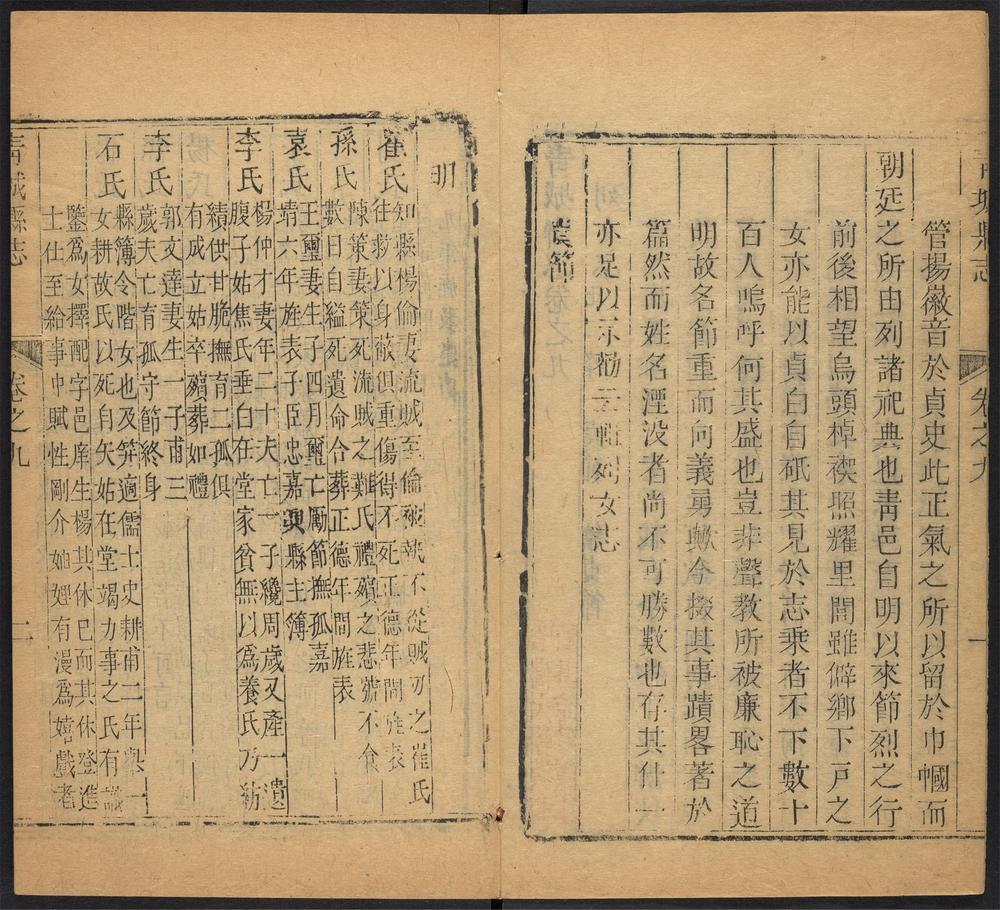 青城縣志 卷之九 一
管揚徽音於貞史此正氣之所以留於巾幗而
朝廷之所由列諸祀典也靑邑自明以來節烈之行
前後相望烏頭棹楔照耀里閭雖僻鄉下戸之
女亦能以貞白自砥其見於志乘者不下數十
百人嗚呼何其盛也豈非聲教所被廉恥之道
明故名節重而向義勇歟今掇其事蹟畧著於
篇然而姓名湮没者尚不可勝數也存其什一
亦足以示勸云 列女志
節
明
崔氏 知縣楊倫妻流賊至倫被執不從賊刃之崔氏
往救以身蔽俱重傷得不死正德年間旌表
孫氏 陳策妻策死流賊之難氏禮殯之悲號不食
數日自縊死遺命合葬正德年間旌表
袁氏 王璽妻生子四月璽亡勵節撫孤嘉
靖六年旌表子臣忠嘉 縣主簿
李氏 楊仲才妻年二十夫亡一子纔周歲又產一遺
腹子姑焦氏垂白在堂家貧無以爲養氏乃紡
績供甘脆撫育二孤俱
有成立姑卒殯葬如禮
李氏 郭文達妻生一子甫三
歲夫亡育孤守節終身
石氏 縣簿令階女也及笄適儒士史耕甫二年與一
女耕故氏以死自矢姑在堂竭力事之氏有識
鑒爲女擇配字邑庠生楊其休已而其休登進
士仕至給事中賦性剛介妯娌有漫爲嬉戲者
靑城縣志 卷之九 二